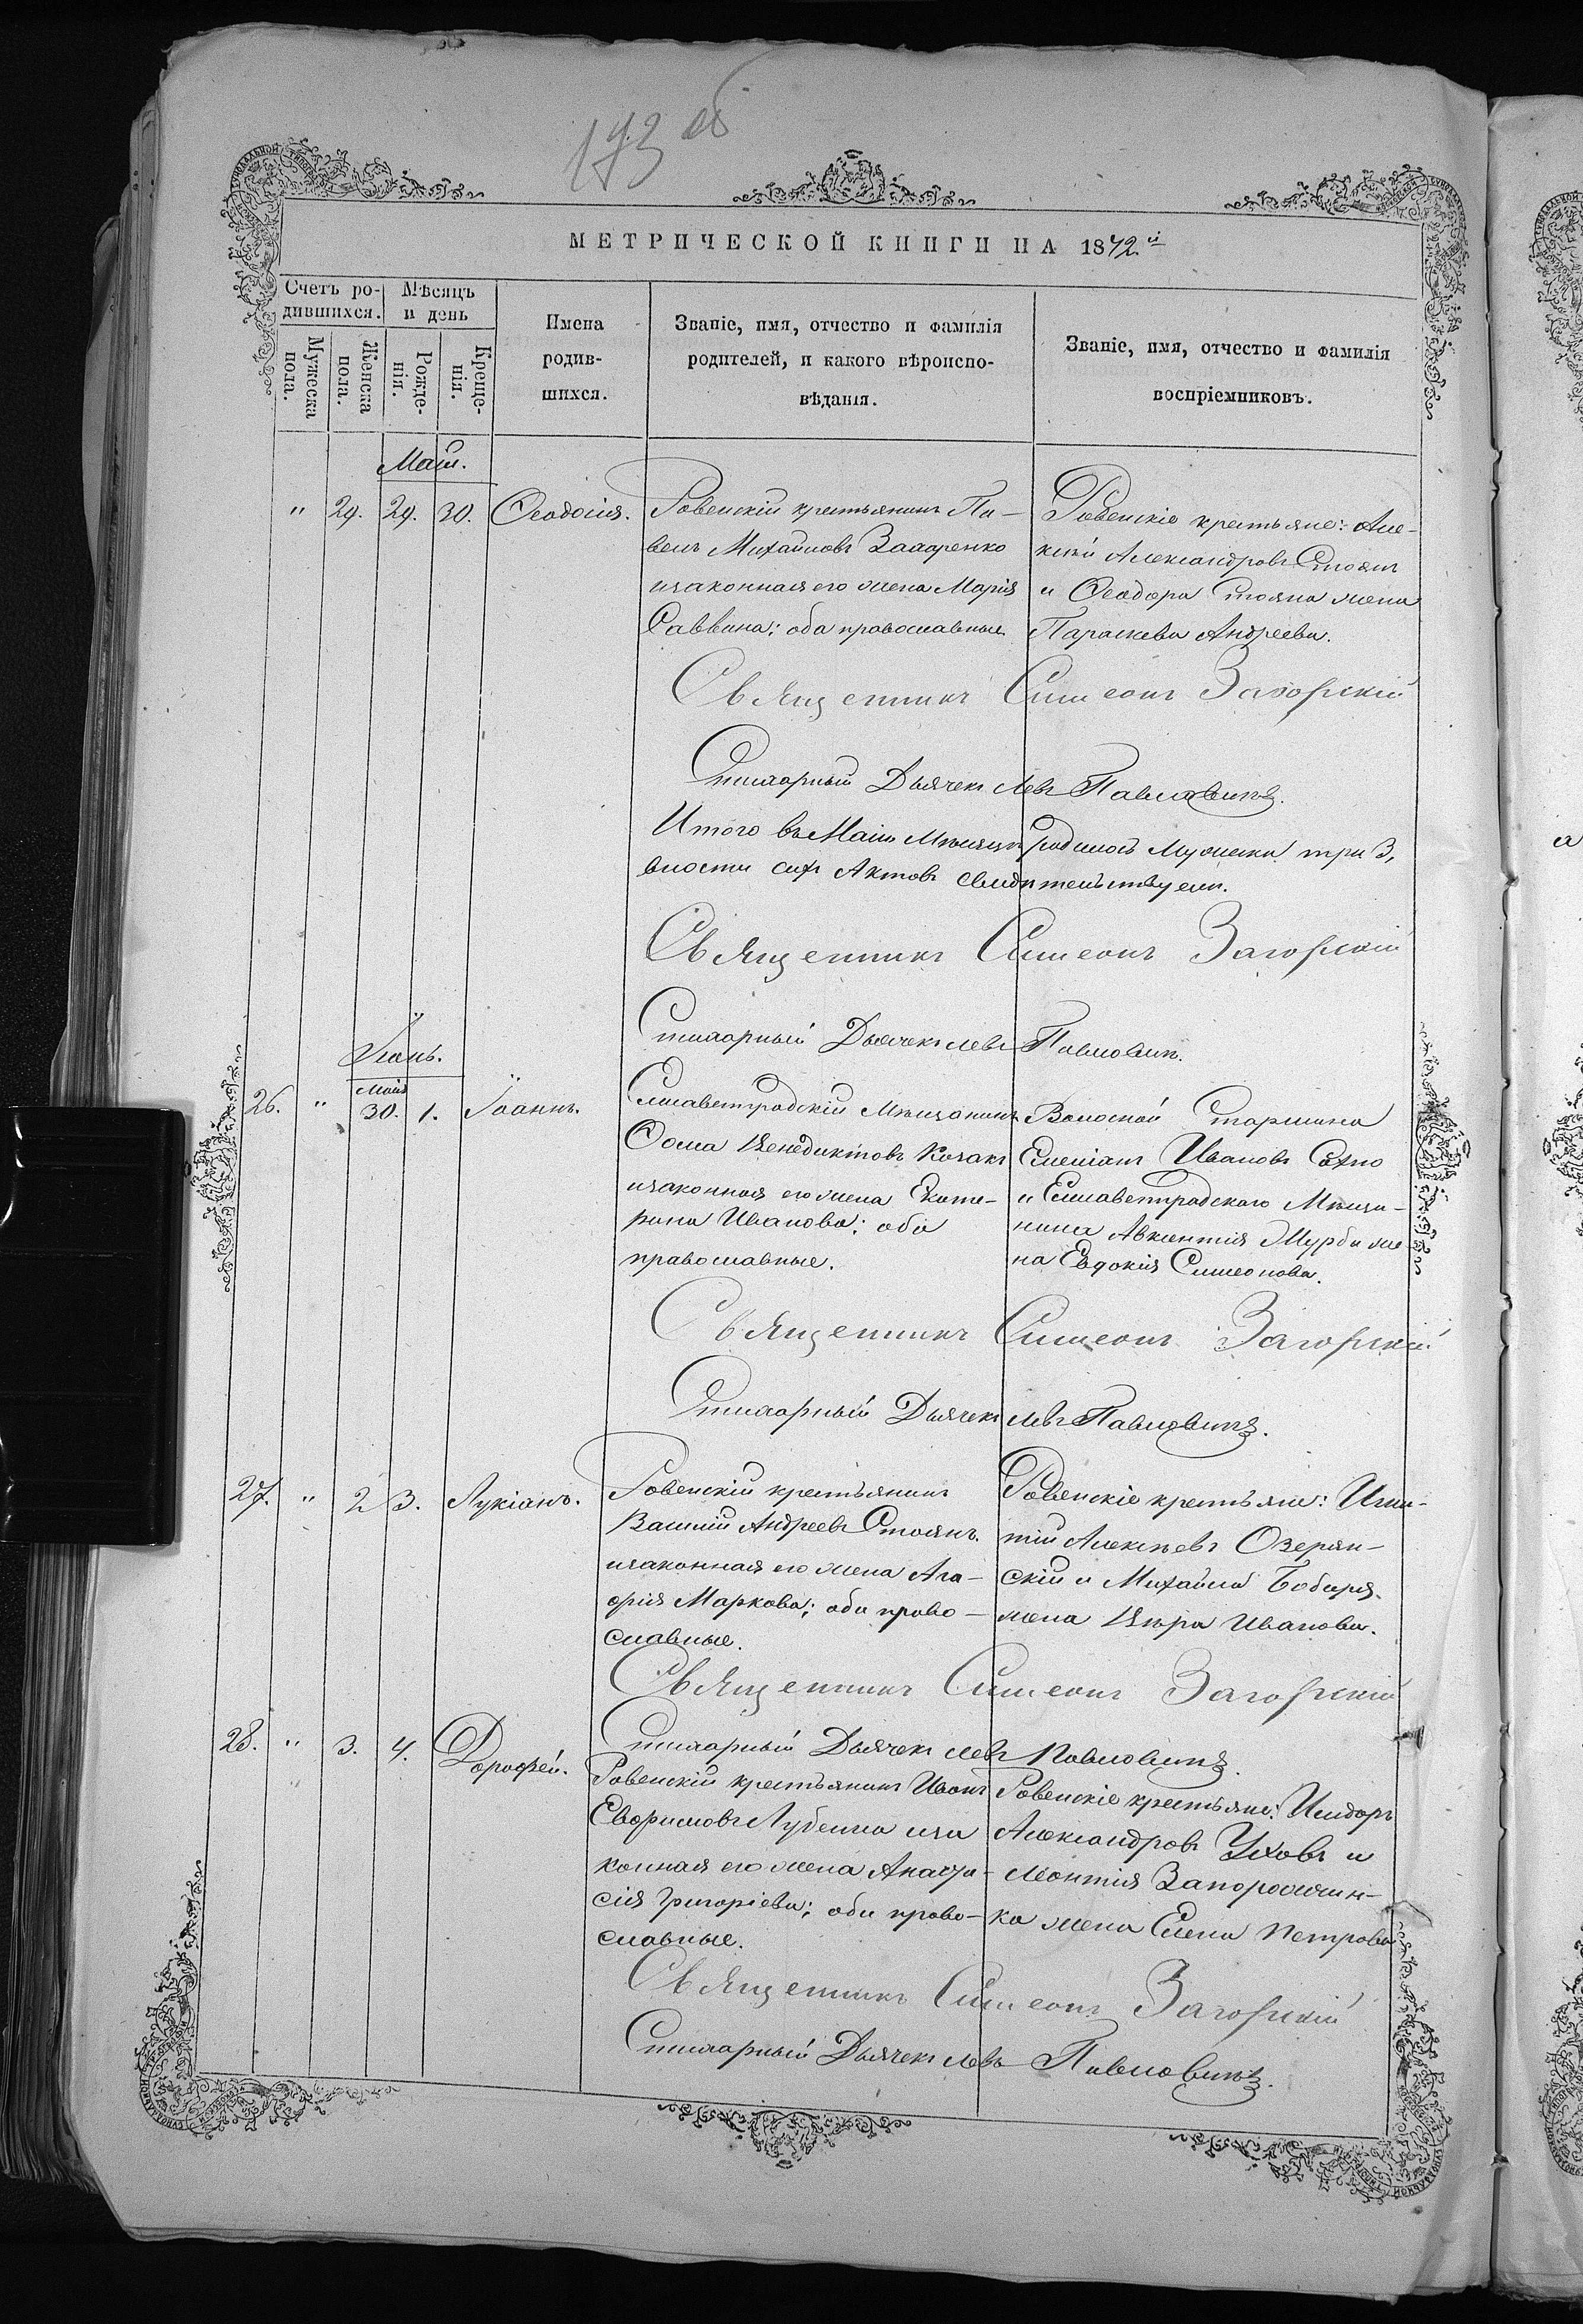 193 об
МЕТРИЧЕСКОЙ КНИГИ НА 1872й
Счетъ ро-
дившихся.
Мужеска
пола.
Женска
пола.
Мѣсяцъ
и день
Рожде-
нія.
Креще-
нія.
Имена
родив-
шихся.
Званіе, имя, отчество и фамилія
родителей, и какого вѣроиспо-
вѣданія.
Званіе, имя, отчество и фамилія
воспріемниковъ.
Маій.
" 29. 29. 30. Ѳеодосія.
Ровенскій крестьянинъ Па-
велъ Михайловъ Захаренко
и законная его жена Марія
Саввина; оба православные.
Ровенскіе крестьяне: Але-
ксѣй Александровъ Стоянъ
и Ѳеодора Стояна жена
Параскева Андреева.
Священникъ Симеонъ Загорскій
Стихарный Дьячекъ Левъ Павловичъ.
Итого въ Маіи Мѣсяцѣ родилось Мужеска три 3,
вности сихъ Актовъ свидѣтельствуемъ.
Священникъ Симеонъ Загорскій
Стихарный Дьячекъ Левъ Павловичъ.
Іюнь.
26. " Маія 30. 1. Іоаннъ.
Елисаветградскій Мѣщанинъ
Ѳома Венедиктовъ Козакъ
и законная его жена Екате-
рина Иванова; оба
православные.
Волосной Старшина
Емеліанъ Ивановъ Сахно
и Елисаветградскаго Мѣща-
нина Авксентія Мурби же-
на Евдокія Симеонова.
Священникъ Симеонъ Загорскій
Стихарный Дьячекъ Левъ Павловичъ.
27. " 2 3. Лукіанъ.
Ровенскій крестьянинъ
Василій Андреевъ Стоянъ.
и законная его жена Ага-
фія Маркова; оба право-
славные.
Ровенскіе крестьяне: Игна-
тій Алексѣевъ Озерян-
скій и Михаила Бобыря
жена Вѣра Иванова.
Священникъ Симеонъ Загорскій
Стихарный Дьячекъ Левъ Павловичъ.
28. " 3. 4. Дорофей.
Ровенскій крестьянинъ Иванъ
Евфимовъ Лубенша и за
конная его жена Анаста-
сія Григоріева; оба право-
славные.
Ровенскіе крестьяне: Исидоръ
Александровъ Уховъ и
Леонтія Запорожчен-
ка жена Елена Петрова
Священникъ Симеонъ Загорскій
Стихарный Дьячекъ Левъ Павловичъ.